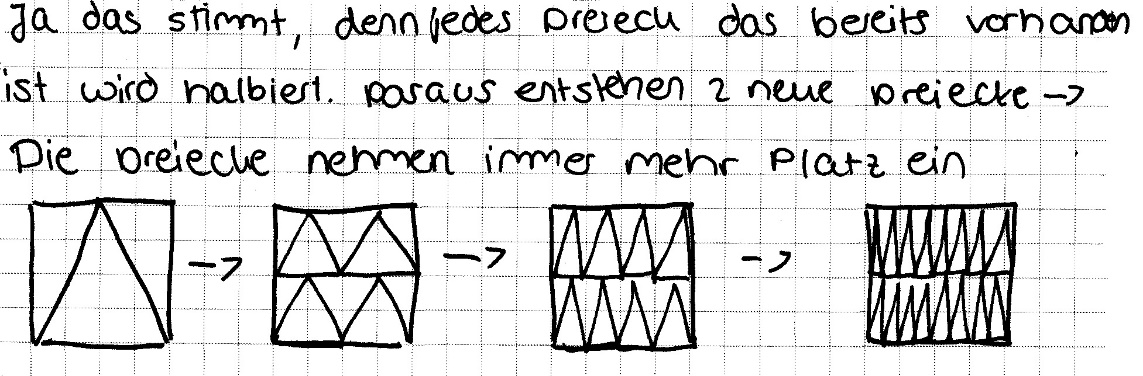 Ja das stimmt, denn jedes Dreieck das bereits vorhanden
ist wird halbiert. Daraus entstehen 2 neue Dreiecke ->
Die Dreiecke nehmen immer mehr Platz ein